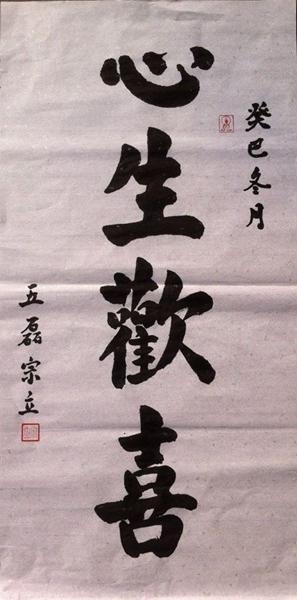 癸巳冬月
心生歡喜
五磊宗立